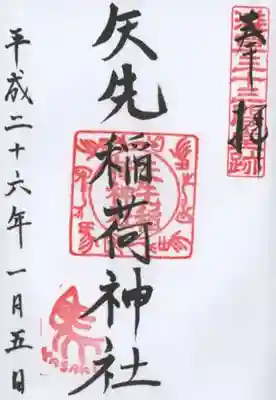 奉拝
矢先稲荷神社
平成二十六年一月五日